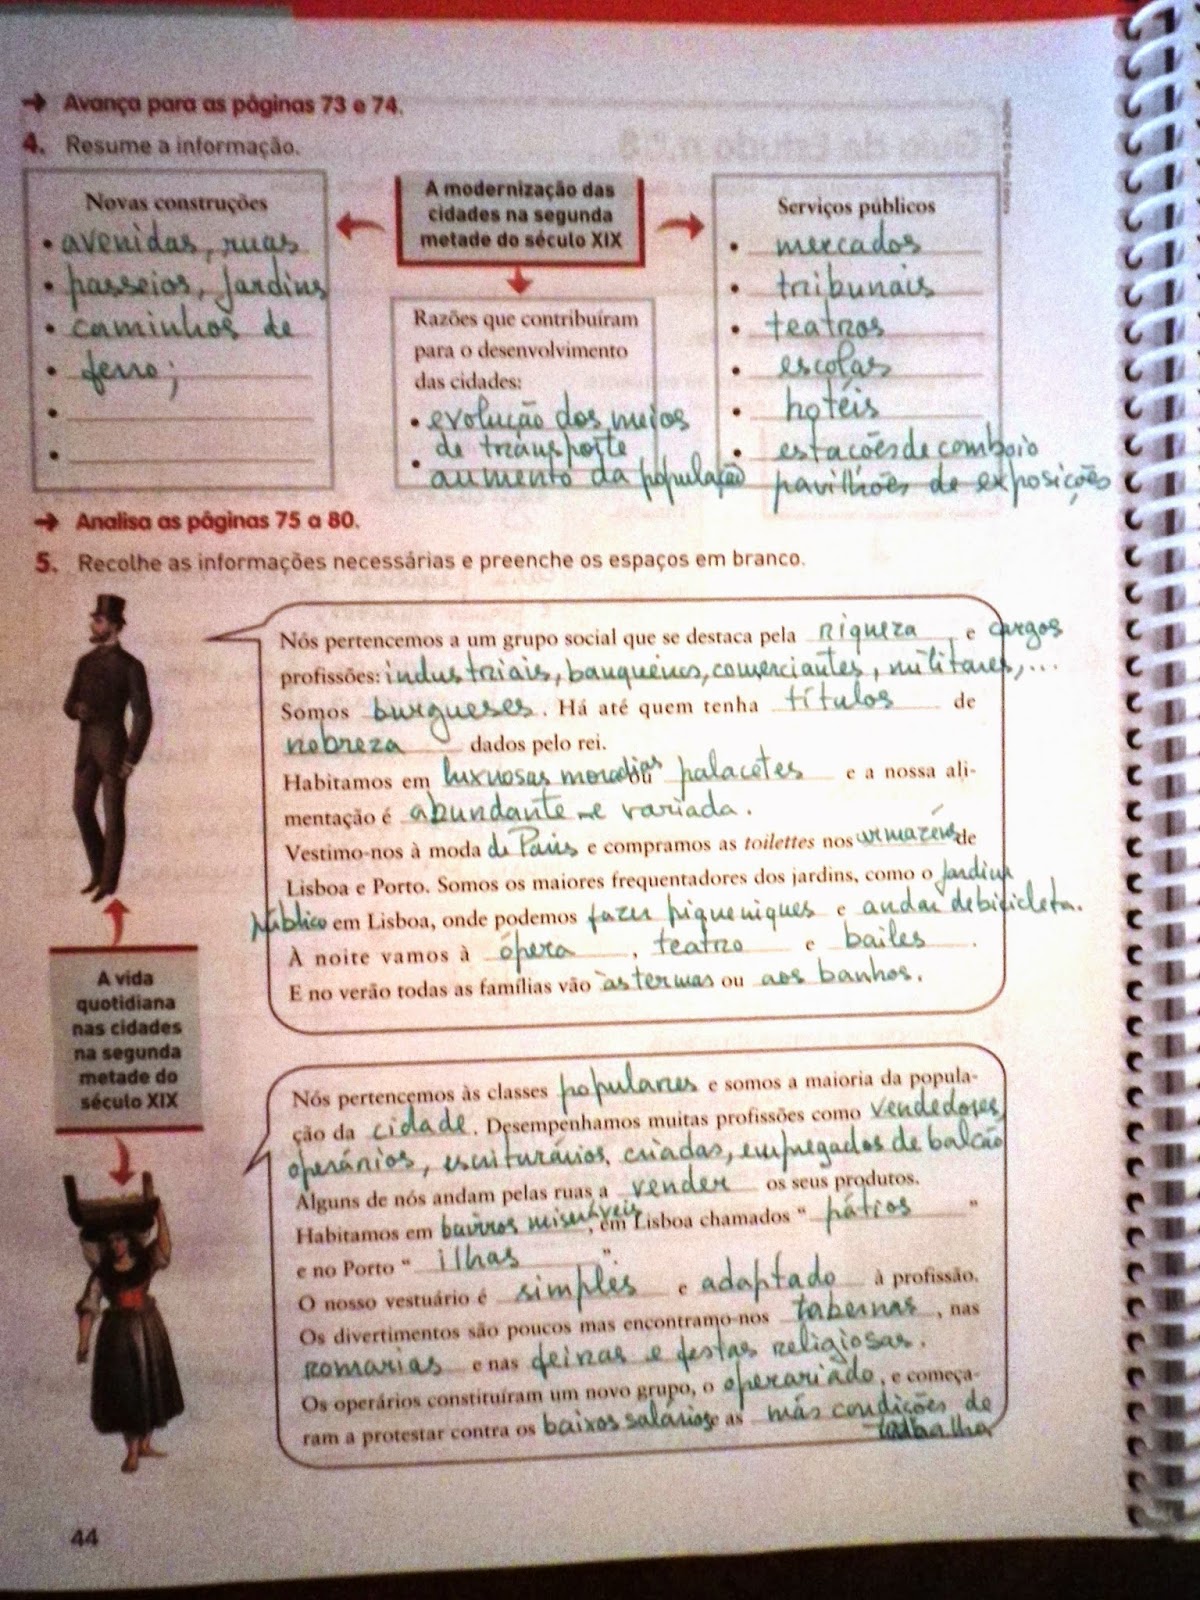 → Avança para as páginas 73 e 74.
4. Resume a informação.
Novas construções
• avenidas, ruas
• passeios, jardins
• caminhos de
• ferro;
•
•
A modernização das
cidades na segunda
metade do século XIX
Razões que contribuíram
para o desenvolvimento
das cidades:
• evolução dos meios
de transporte
• aumento da população
Serviços públicos
• mercados
• tribunais
• teatros
• escolas
• hotéis
• estações de comboio
pavilhões de exposições
→ Analisa as páginas 75 a 80.
5. Recolhe as informações necessárias e preenche os espaços em branco.
Nós pertencemos a um grupo social que se destaca pela riqueza e cargos
profissões: industriais, banqueiros, comerciantes, militares, ...
Somos burgueses. Há até quem tenha títulos de
nobreza dados pelo rei.
Habitamos em luxuosas moradias ou palacetes e a nossa ali-
mentação é abundante e variada.
Vestimo-nos à moda de Paris e compramos as toilettes nos armazéns de
Lisboa e Porto. Somos os maiores frequentadores dos jardins, como o Jardim
Público em Lisboa, onde podemos fazer piqueniques e andar de bicicleta.
À noite vamos à ópera, teatro e bailes.
E no verão todas as famílias vão às termas ou aos banhos.
A vida
quotidiana
nas cidades
na segunda
metade do
século XIX
Nós pertencemos às classes populares e somos a maioria da popula-
ção da cidade. Desempenhamos muitas profissões como vendedores,
operários, escriturários, criadas, empregados de balcão
Alguns de nós andam pelas ruas a vender os seus produtos.
Habitamos em bairros miseráveis, em Lisboa chamados “pátios”
e no Porto “ilhas”.
O nosso vestuário é simples e adaptado à profissão.
Os divertimentos são poucos mas encontramo-nos tabernas, nas
romarias e nas feiras e festas religiosas.
Os operários constituíram um novo grupo, o operariado, e começa-
ram a protestar contra os baixos salários e as más condições de
trabalho
44